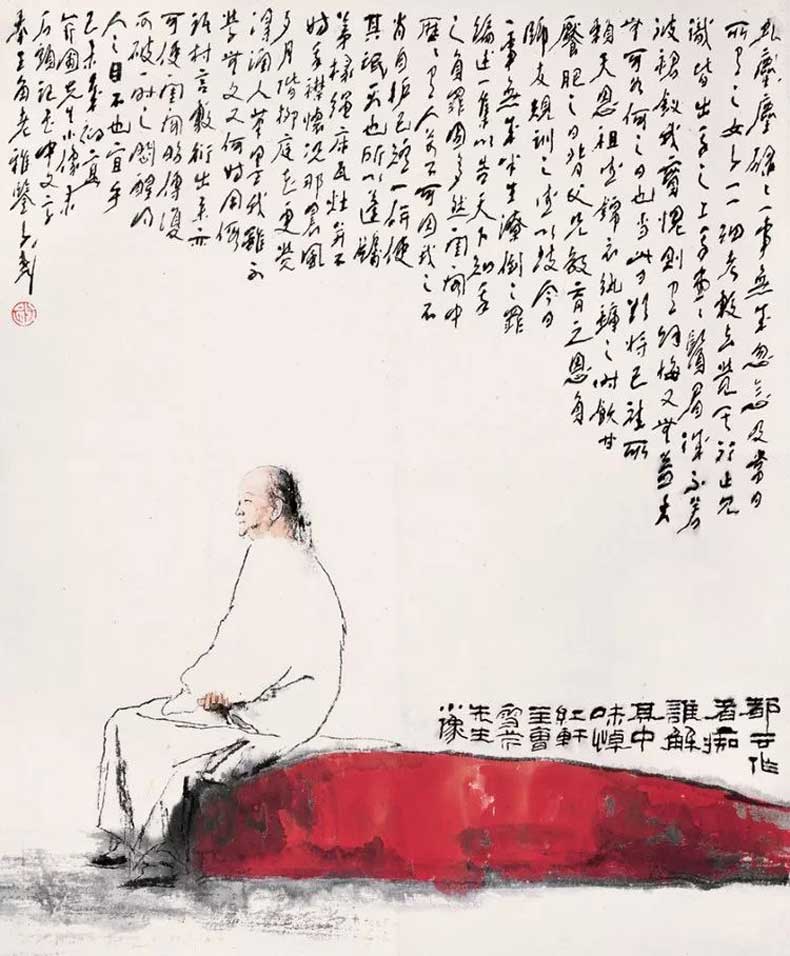 風塵碌々一事無成忽念及當日
所有之女子一一細考較去覺其行止見
識皆出之上堂々鬚眉誠不若
彼裙釵我實愧則有餘悔又無益大
無可如何之日也當此日欲將已往所
賴天恩祖德錦衣紈絝之時飫甘
饜肥之日背父兄教育之恩負
師友規訓之德以致今日
一事無成半生潦倒之罪
編述一集以告天下知我
之負罪固多然閨閣中
歷々有人萬不可因我之不
肖自護己短一併使
其泯滅也所以蓬牖
茅椽繩床瓦灶並不
妨我襟懷況那晨風
夕月階柳庭花更覺
潤人筆墨我雖不
學無文又何妨用假
語村言敷衍出來亦
可使閨閣昭傳復
可破一時之悶醒同
人之目不也宜乎
己未春
芹圃先生小像录
石頭記中文字
奉三角老雅鑒
都云作
者痴
誰解
其中
味悼
紅軒
主曹
雪芹
先生
小像